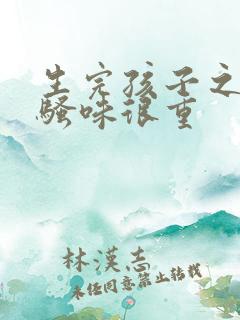 生完孩子之
骚味很重
林漢志
未经同意禁止转载